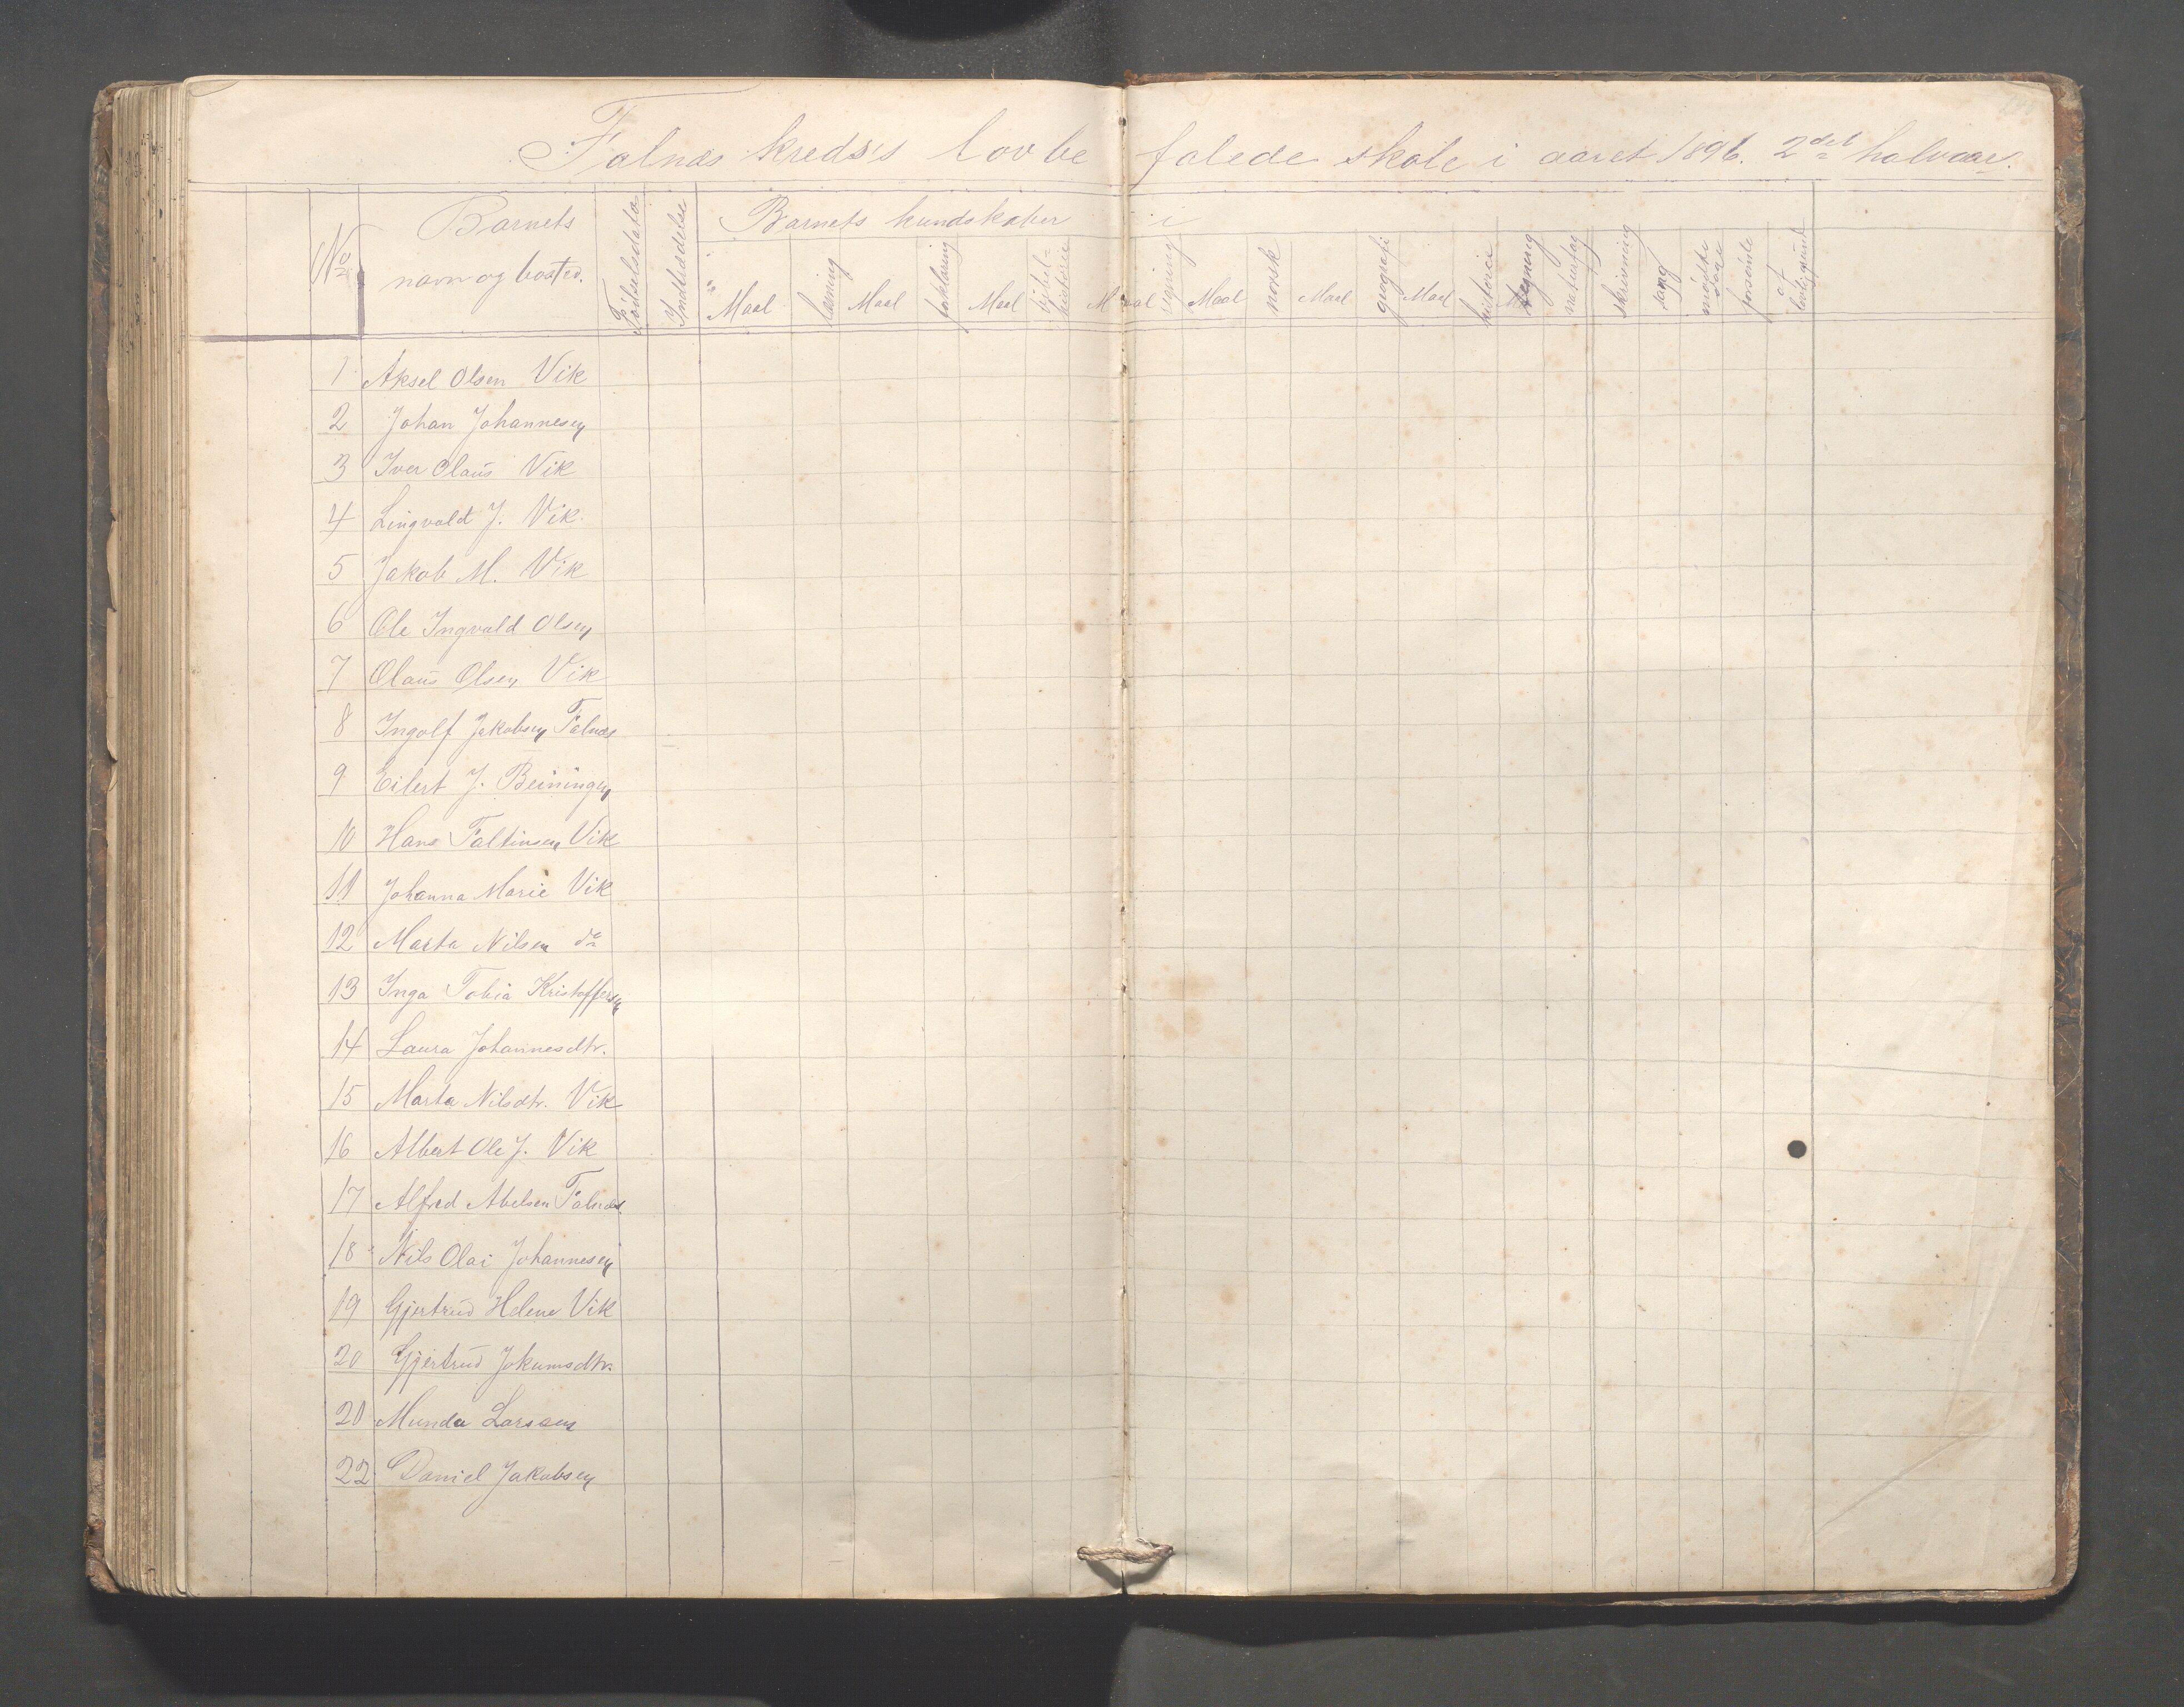 Falnæs kreds's lovbefalede skole i aaret 1896. 2det halvaar.
No
Barnets
navn og bosted.
Födselsdato
Indtrædelse
Barnets kundskaber i
Maal
læsning
Maal
forklaring
Maal
bibel-
historie
Maal
regning
Maal
norsk
Maal
geografi
Maal
historie
tegning
naturfag
skrivning
sang
mødte
dage
forsømte
af
lovlig grund
1 Aksel Olsen Vik
2 Johan Johannesen
3 Iver Olaus Vik
4 Lingvald J. Vik
5 Jakob M. Vik
6 Ole Ingvald Olsen
7 Olaus Olsen Vik
8 Ingolf Jakobsen Falnæs
9 Eilert J. Beiningen
10 Hans Faltinsen Vik
11 Johanna Marie Vik
12 Marta Nilsen do
13 Inga Tobia Kristoffersen
14 Laura Johannesdtr.
15 Marta Nilsdtr. Vik
16 Albert Ole J. Vik
17 Alfred Abelsen Falnæs.
18 Nils Olai Johannesen
19 Gjertrud Helene Vik
20 Gjertrud Jokumsdtr.
20 Munda Larsen
22 Daniel Jakobsen